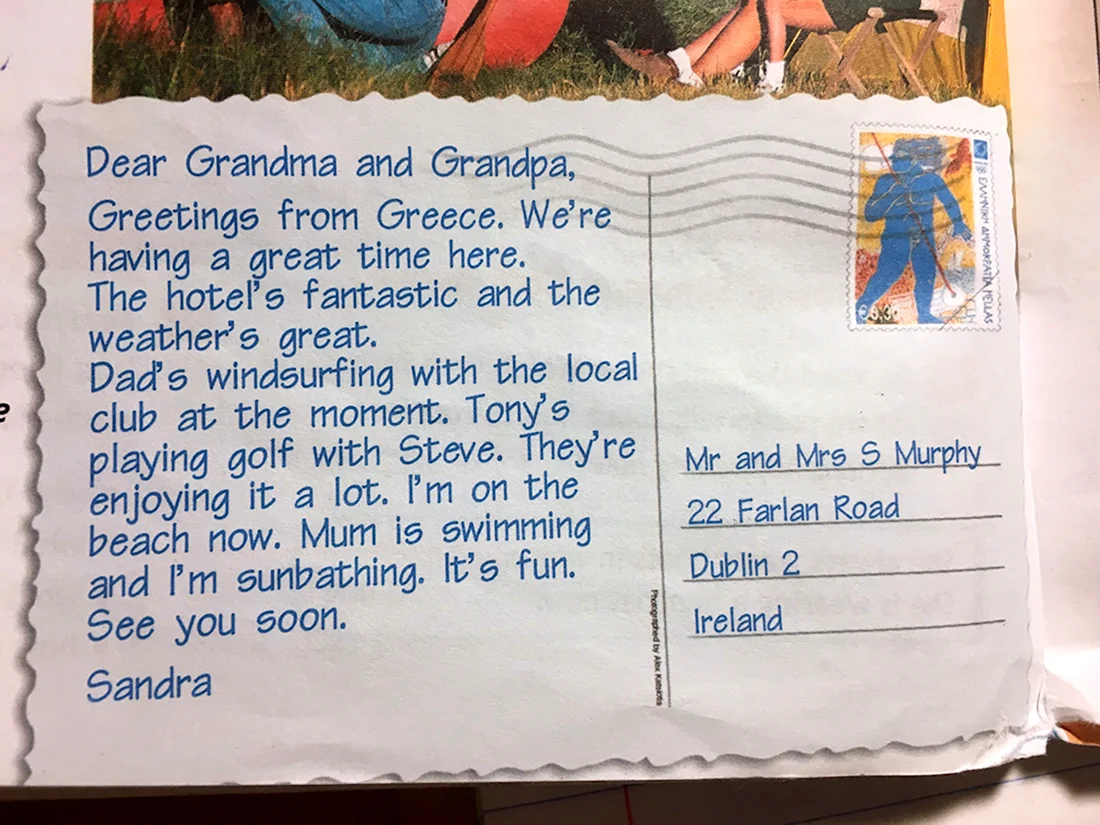 Dear Grandma and Grandpa,
Greetings from Greece. We're
having a great time here.
The hotel's fantastic and the
weather's great.
Dad's windsurfing with the local
club at the moment. Tony's
playing golf with Steve. They're
enjoying it a lot. I'm on the
beach now. Mum is swimming
and I'm sunbathing. It's fun.
See you soon.
Sandra
Photographed by Alex
ΕΛΛΗΝΙΚΗ ΔΗΜΟΚΡΑΤΙΑ HELLAS
Mr and Mrs S Murphy
22 Farlan Road
Dublin 2
Ireland